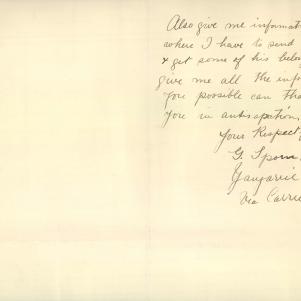 Also give me informat
where I have to send
& get some of his belon
give me all the info
you possible can tha
you in antisipation
Your Respect
G.
Via Carri